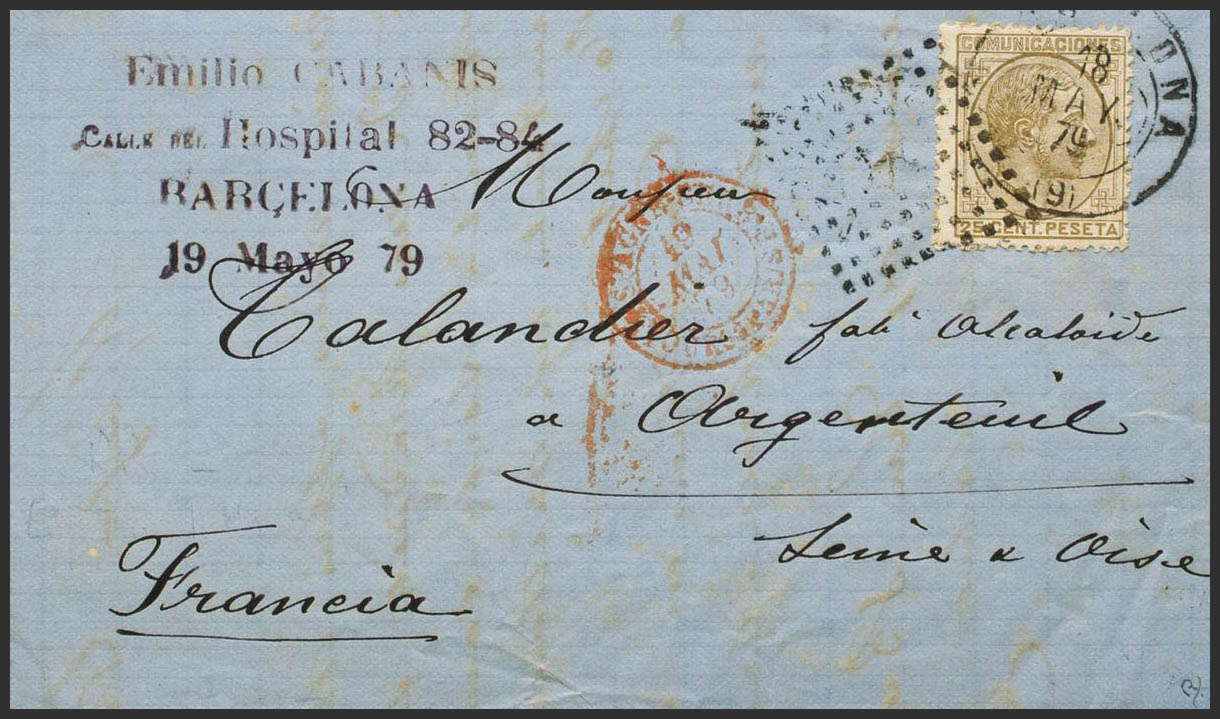 Emilio CABANIS
CALLE DEL Hospital 82-84
BARCELONA
19 Mayo 79
COMUNICACIONES
25 CENT. PESETA
18
MAY.
79
ONA
Monsieur
Talandier fabt Alcaloïde
a Argenteuil
Seine & Oise
Francia